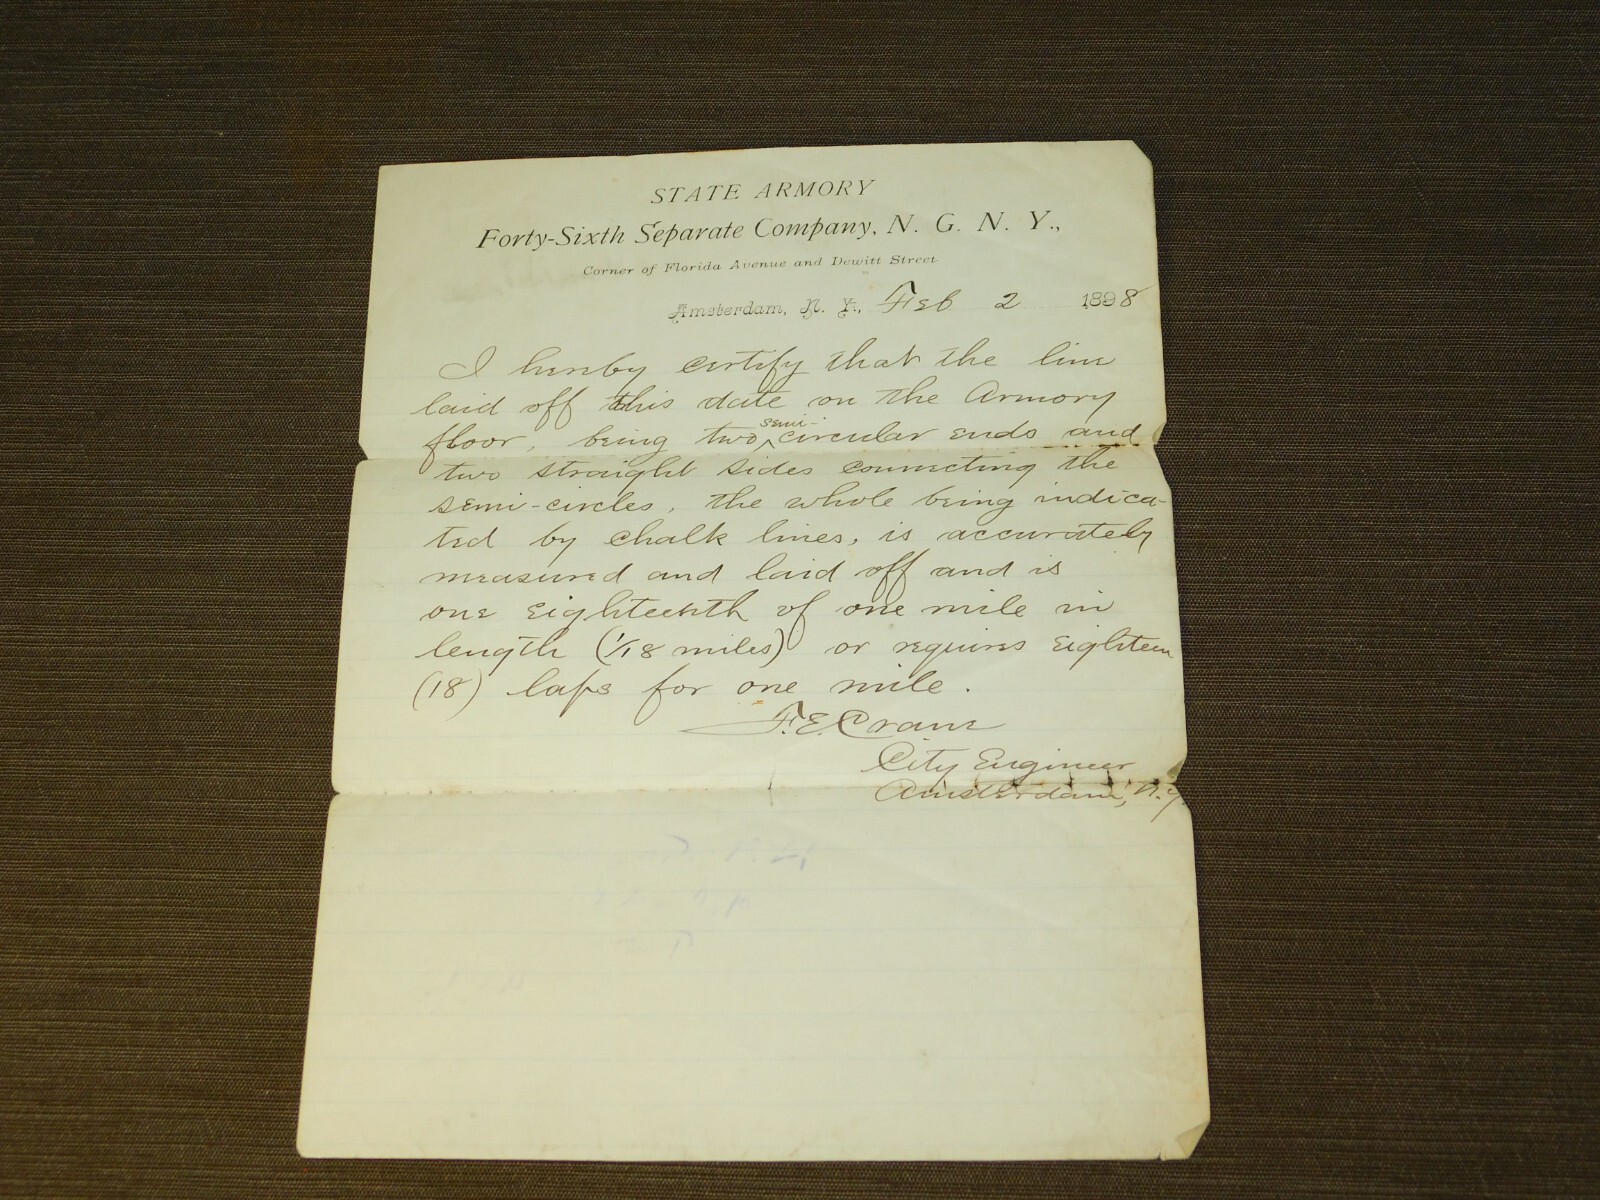 STATE ARMORY
Forty-Sixth Separate Company, N. G. N. Y.,
Corner of Florida Avenue and Dewitt Street
Amsterdam, N. Y., Feb 2 1898
I hereby certify that the line
laid off this date on the Armory
floor, being two semi-circular ends and
two straight sides connecting the
semi-circles, the whole being indica-
ted by chalk lines, is accurately
measured and laid off and is
one eighteenth of one mile in
length (1/18 miles) or requires eighteen
(18) laps for one mile.
F. E. Crane
City Engineer
Amsterdam, N.Y.